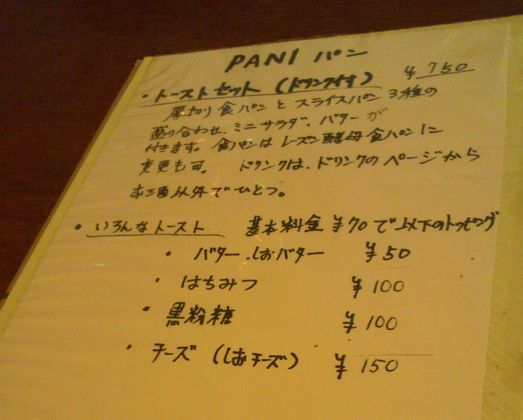 PANI パン
・トーストセット (ドリンク付) ¥750
厚切り食パンとスライスパン3種の
盛り合わせ、ミニサラダ、バターが
付きます。食パンはレーズン酵母食パンに
変更も可。 ドリンクは、ドリンクのページから
お酒以外でひとつ。
・いろんなトースト 基本料金 ¥70で以下のトッピング
・バター、しおバター ¥50
・はちみつ ¥100
・黒粉糖 ¥100
・チーズ (しおチーズ) ¥150